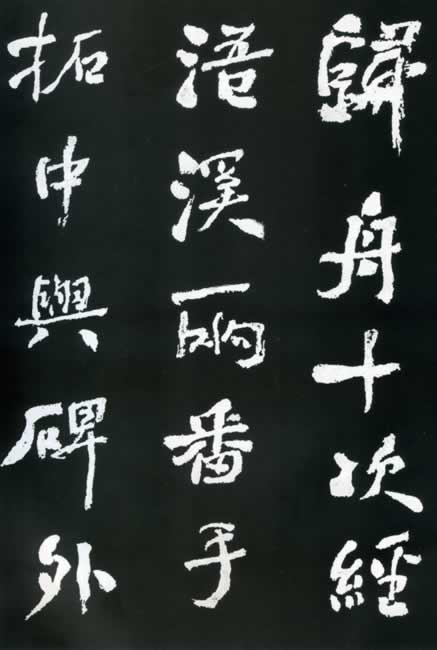 歸舟十次經
浯溪兩番手
拓中興碑外